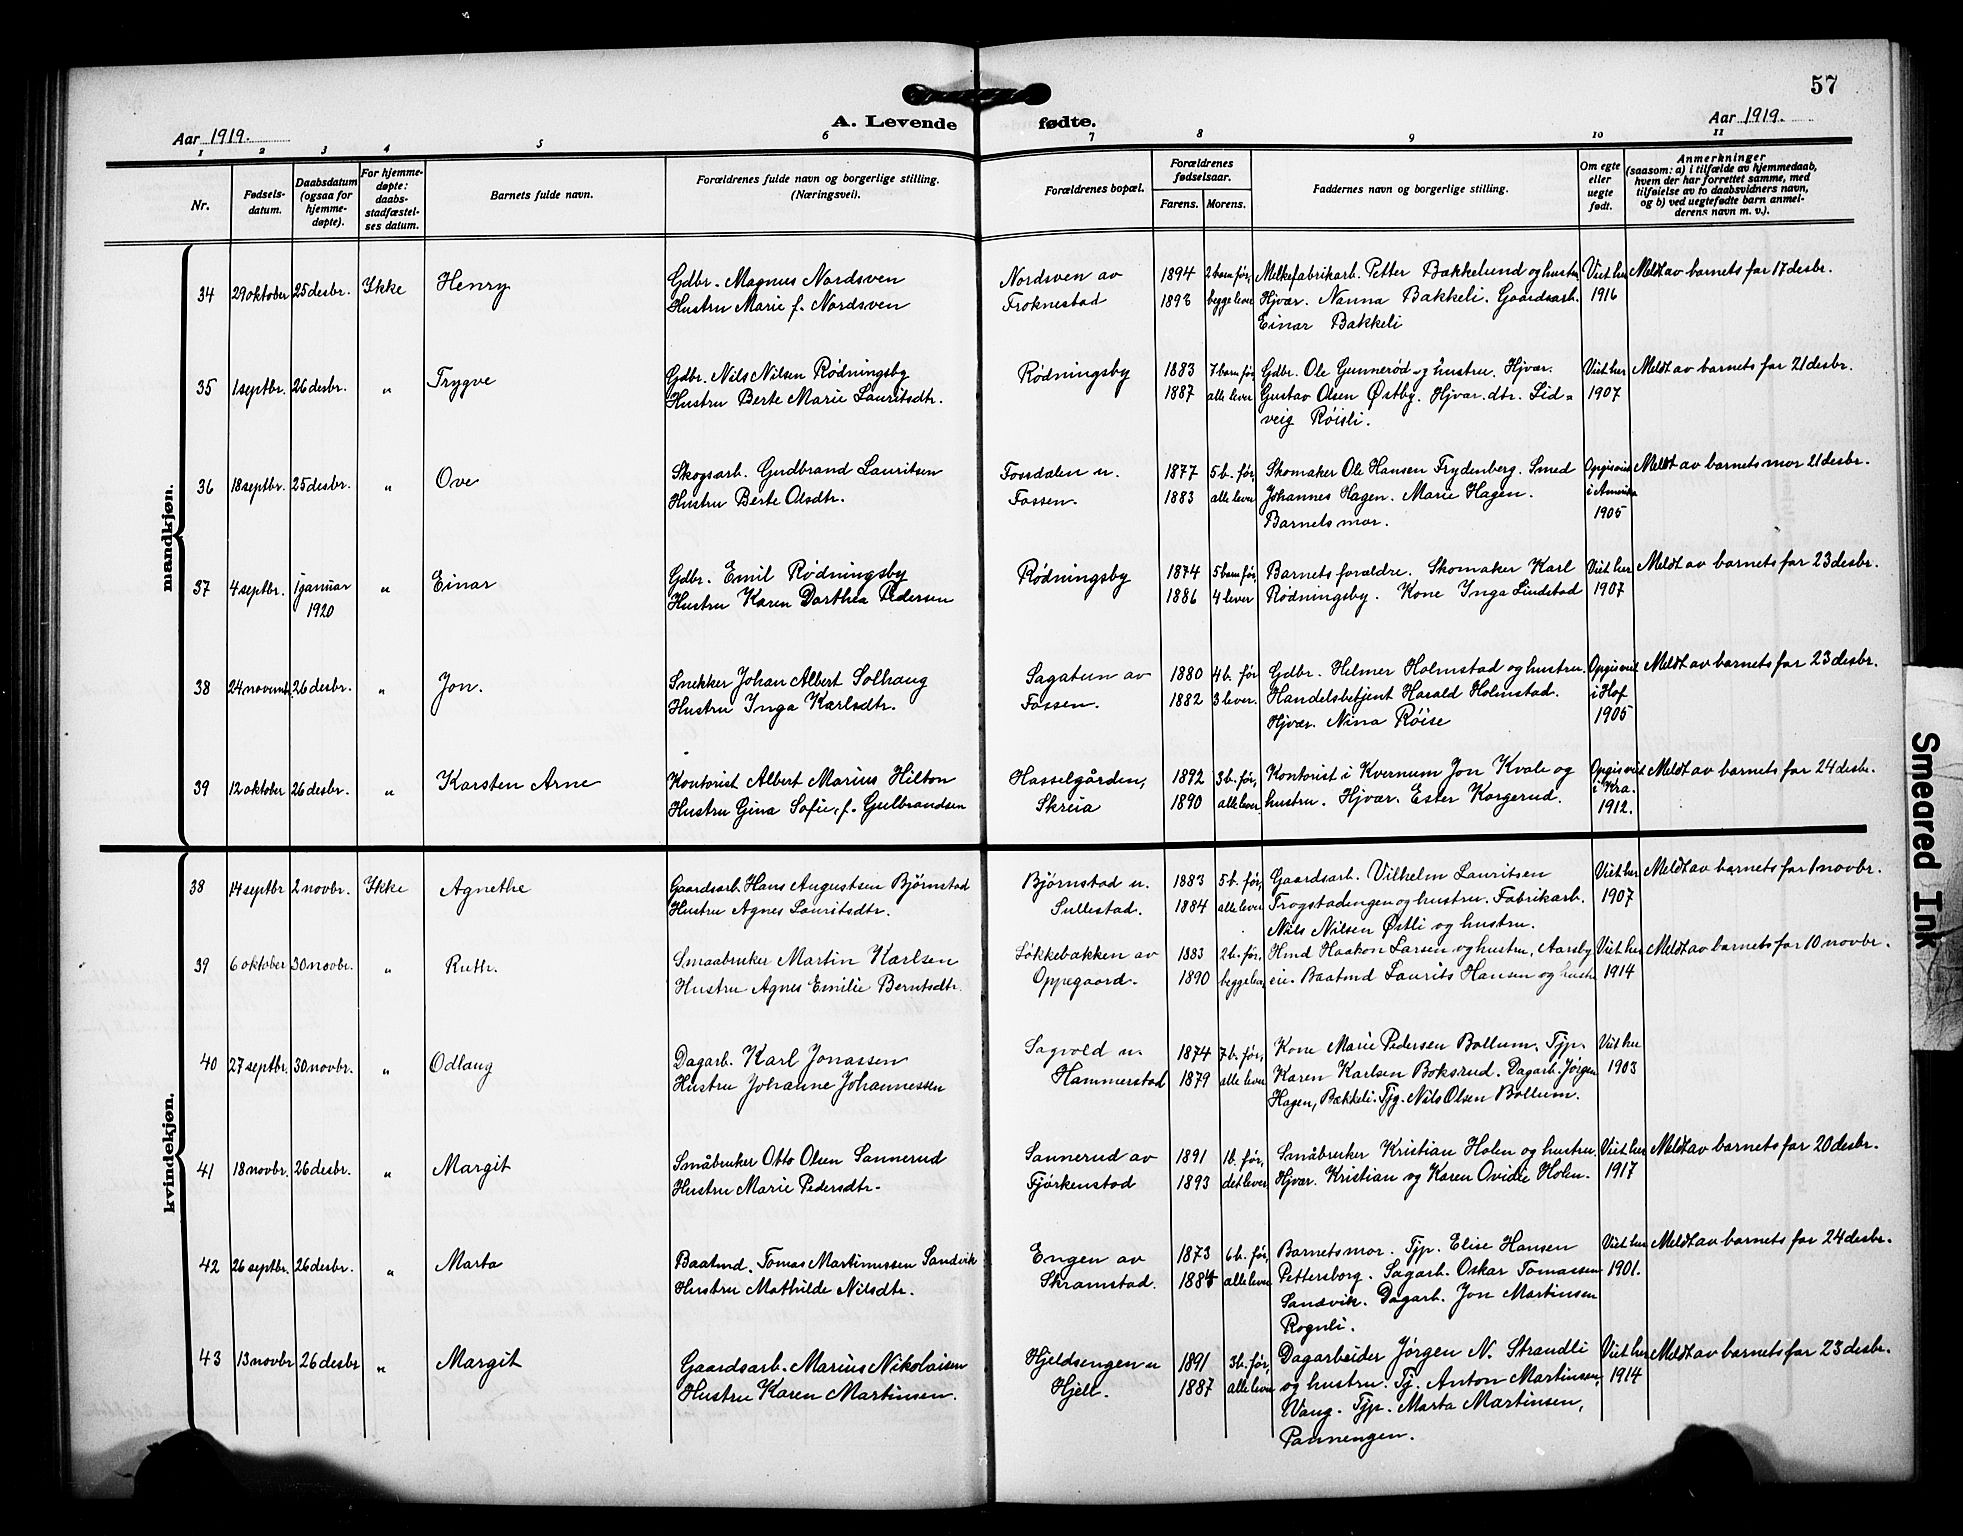 57
Aar 1919.
A. Levende fødte.
Aar 1919.
1 2 3 4 5 6 7 8 9 10 11
Nr.
Fødsels-
datum.
Daabsdatum
(ogsaa for
hjemme-
døpte).
For hjemme-
døpte:
daabs-
stadfæstel-
ses datum.
Barnets fulde navn.
Forældrenes fulde navn og borgerlige stilling.
(Næringsvei).
Forældrenes bopæl.
Forældrenes
fødselsaar.
Farens. Morens.
Faddernes navn og borgerlige stilling.
Om egte
eller
uegte
født.
Anmerkninger
(saasom: a) i tilfælde av hjemmedaab,
hvem der har forrettet samme, med
tilføielse av to daabsvidners navn,
og b) ved uegtefødte barn anmel-
derens navn m. v.).
mandkjøn.
34 29 oktober 25 desbr. Ikke Henry
Gdbr. Magnus Nordsven
Hustru Marie f. Nordsven
Nordsven av
Froknestad
1894 2 barn før,
1893 begge lever
Melkefabrikarb. Petter Bakkelund og hustru
Hjvar. Nanna Bakkeli. Gaardsarb.
Einar Bakkeli
Viet her
1916
Meldt av barnets far 17 desbr.
35 1 septbr. 26 desbr. " Trygve
Gdbr. Nils Nilsen Rødningsby
Hustru Berte Marie Lauritsdtr.
Rødningsby
1883 7 barn før,
1887 alle lever
Gdbr. Ole Gunnerød og hustru. Hjvar.
Gustav Olsen Østby. Hjvar. dtr. Lid-
veig Røisli.
Viet her
1907
Meldt av barnets far 21 desbr.
36 18 septbr. 25 desbr. " Ove
Skogsarb. Gudbrand Lauritsen
Hustru Berte Olsdtr.
Fossdalen u.
Fossen.
1877 5 b. før,
1883 alle lever
Skomaker Ole Hansen Frydenberg. Smed
Johannes Hagen. Marie Hagen.
Barnets mor.
Opgis viet
i Amerika
1905
Meldt av barnets mor 21 desbr.
37 4 septbr. 1 januar
1920
" Einar
Gdbr. Emil Rødningsby
Hustru Karen Dorthea Pedersen
Rødningsby
1874 5 barn før,
1886 4 lever
Barnets forældre. Skomaker Karl
Rødningsby. Kone Inga Lindstad
Viet her
1907
Meldt av barnets far 23 desbr.
38 24 novemb. 26 desbr. " Jon.
Snekker Johan Albert Solhaug
Hustru Inga Karlsdtr.
Sagatun av
Fossen.
1880 4 b. før
1882 3 lever.
Gdbr. Helmer Holmstad og hustru.
Handelsbetjent Harald Holmstad.
Hjvar. Nina Røise
Opgis viet
i Hof
1905
Meldt av barnets far 23 desbr.
39 12 oktober 26 desbr. " Karsten Arne
Kontorist Albert Marius Hilton
Hustru Gina Sofie, f. Gulbrandsen
Hasselgården,
Skreia
1892 3 b. før,
1890 alle lever
Kontorist i Kvernum Jon Kvale og
hustru. Hjvar. Ester Korgerud.
Opgis viet
i Kra.
1912.
Meldt av barnets far 24 desbr.
kvindekjøn.
38 14 septbr 2 novbr. Ikke Agnethe
Gaardsarb. Hans Augustsen Bjørnstad
Hustru Agnes Lauritsdtr.
Bjørnstad u.
Sullestad.
1883 5 b. før,
1884 alle lever
Gaardsarb. Vilhelm Lauritsen
Trogstadengen og hustru. Fabrikarb.
Nils Nilsen Østli og hustru.
Viet her
1907
Meldt av barnets far 1 novbr.
39 6 oktober 30 novbr. " Ruth.
Smaabruker Martin Karlsen
Hustru Agnes Emilie Berntsdtr.
Løkkebakken av
Oppegaard.
1883 2 b. før,
1890 begge lev.
Hmd Haakon Larsen og hustru, Aarsby
eie. Baatmd Laurits Hansen og hustr
Viet her
1914
Meldt av barnets far 10 novbr.
40 27 septbr. 30 novbr. " Odlaug
Dagarb. Karl Jonassen
Hustru Johanne Johannessen
Sagvold u.
Hammerstad
1874 7 b. før,
1879 alle lever
Kone Marie Pedersen Bollum. Tjp.
Karen Karlsen Boksrud. Dagarb. Jørgen
Hagen, Bækkeli. Tjg. Nils Olsen Bollum.
Viet her
1903
41 18 novbr. 26 desbr. " Margit
Småbruker Otto Olsen Sannerud
Hustru Marie Pedersdtr.
Sannerud av
Fjørkenstad
1891 1 b. før,
1893 det lever
Småbruker Kristian Holen og hustru
Hjvar. Kristian og Karen Ovidie Holen.
Viet her
1917
Meldt av barnets far 20 desbr.
42 26 septbr. 26 desbr. " Marta
Baatmd. Tomas Martinussen Sandvik
Hustru Mathilde Nilsdtr.
Engen av
Skramstad.
1873 6 b. før,
1884 alle lever
Barnets mor. Tjp. Elise Hansen
Pettersborg. Sagarb. Oskar Tomassen
Sandvik. Dagarb. Jon Martinsen
Rognli.
Viet her
1901.
Meldt av barnets far 24 desbr.
43 13 novbr 26 desbr " Margit
Gaardsarb. Marius Nikolaisen
Hustru Karen Martinsen.
Hjeldsengen u
Hjell.
1891 3 b. før,
1887 alle lever
Dagarbeider Jørgen N. Strandli
og hustru. Tj. Anton Martinsen,
Wang. Tjp. Marta Martinsen,
Pannengen.
Viet her
1914
Meldt av barnets far 23 desbr.
Smeared Ink